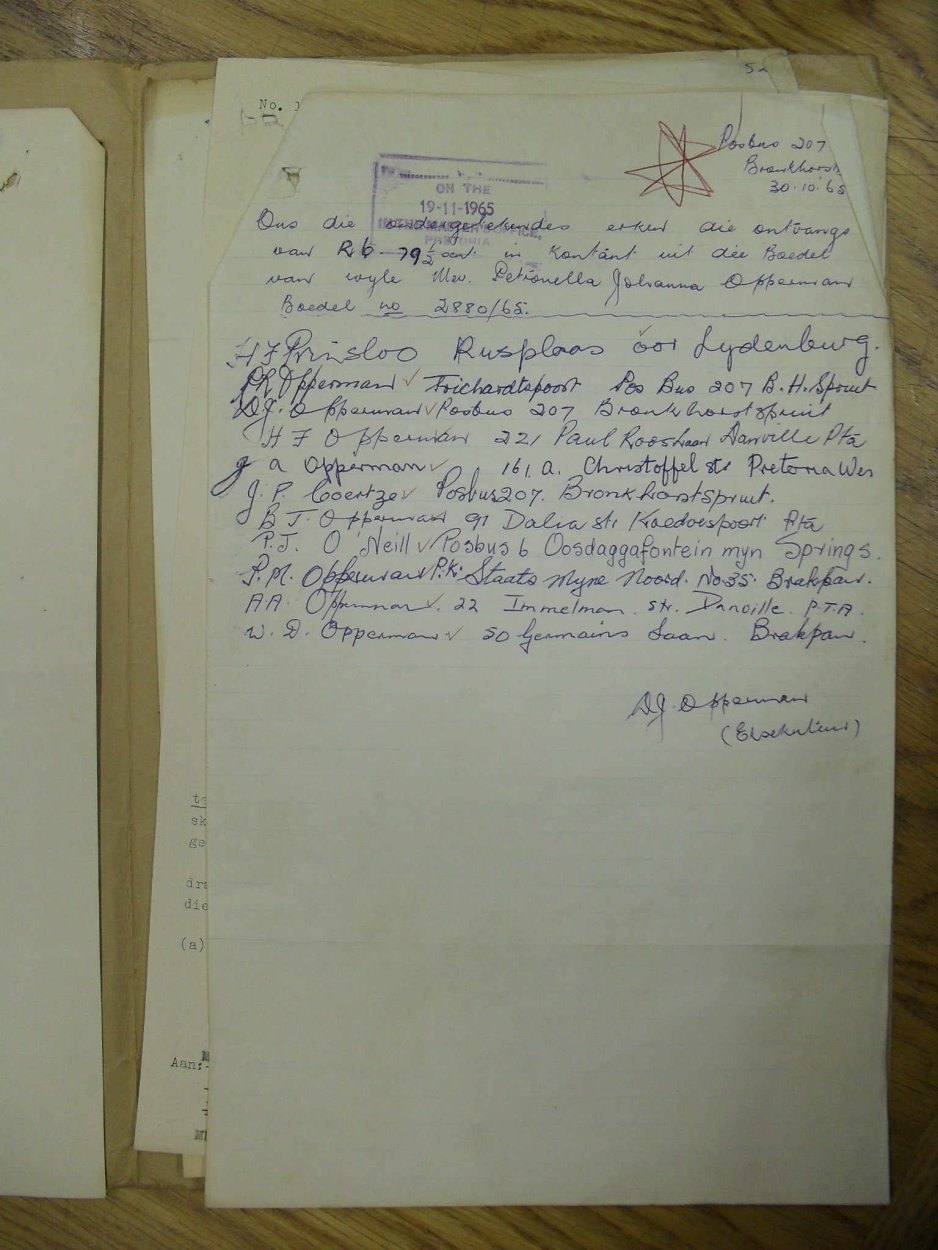 52
No.
Posbus 207
Bronkhorst
30.10.65
ON THE
19-11-1965
IN THE MASTER'S OFFICE,
PRETORIA
Ons die ondergetekendes erken die ontvangs
van R6-79½ sent in Kontant uit die Boedel
van wyle Mev. Petronella Johanna Opperman
Boedel no 2880/65.
H F Prinsloo Rusplaas oor Lydenburg.
Opperman Trichardtspoort Pos Bus 207 B.H. Spruit
D.J. Opperman Posbus 207 Bronkhorstspruit
H F Opperman 221 Paul Rooslaan Danville Pta
J a Opperman 161, a. Christoffel str Pretoria Wes
J. P. Coertze Posbus 207. Bronkhorstspruit.
B J. Opperman 91 Dalia str Koedoespoort Pta
P.J. O'Neill Posbus 6 Oosdaggafontein myn Springs.
P.M. Opperman P.K. Staats Myne Noord. No 35. Brakpan.
A A. Opperman. 22 Immelman. str. Danville. P.T.A.
W. D. Opperman 50 Germains Laan. Brakpan.
D.J. Opperman
(Eksekuteur)
sk
ge
dra
die
(a)
Aan:-